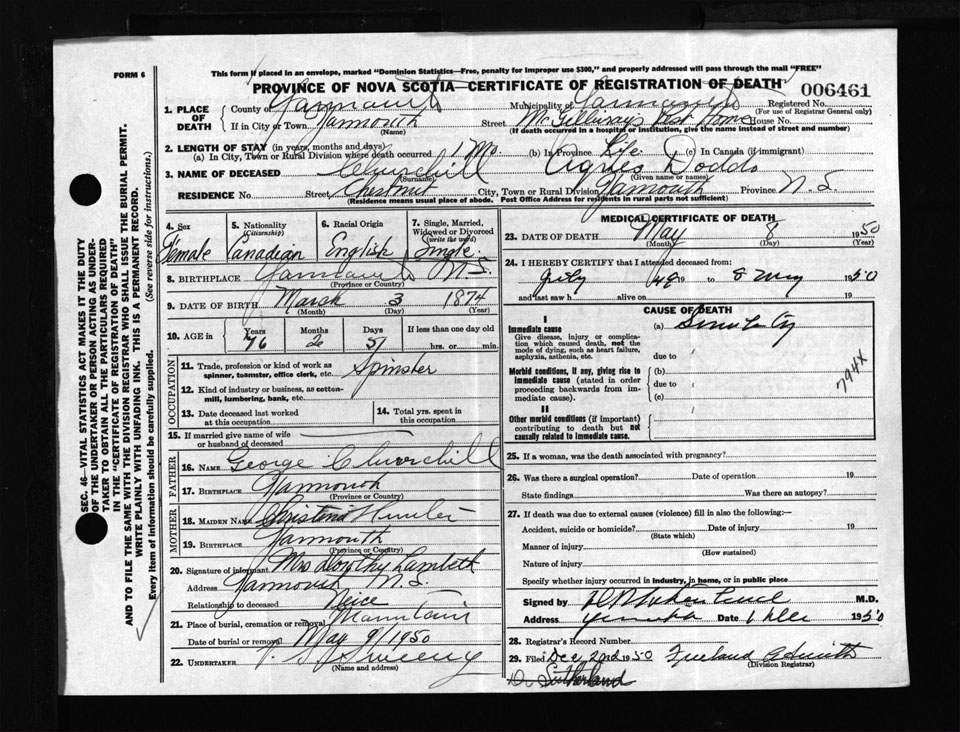 FORM 6
This form if placed in an envelope, marked "Dominion Statistics—Free, penalty for improper use $300," and properly addressed will pass through the mail "FREE"
PROVINCE OF NOVA SCOTIA—CERTIFICATE OF REGISTRATION OF DEATH
006461
1. PLACE OF DEATH
County of Yarmouth Municipality of Yarmouth Registered No.
(For use of Registrar General only)
If in City or Town Yarmouth Street McGillivray's Rest Home House No.
(Name) (If death occurred in a hospital or institution, give the name instead of street and number)
2. LENGTH OF STAY (in years, months and days)
(a) In City, Town or Rural Division where death occurred 1 Mo. (b) In Province Life (c) In Canada (if immigrant)
3. NAME OF DECEASED Churchill Agnes Dodds
(Surname) (Given name or names)
RESIDENCE No. Street Chestnut City, Town or Rural Division Yarmouth Province N.S.
(Residence means usual place of abode. Post Office Address for residents in rural parts not sufficient)
4. Sex
Female
5. Nationality
(Citizenship)
Canadian
6. Racial Origin
English
7. Single, Married, Widowed or Divorced
(write the word)
Single
8. BIRTHPLACE Yarmouth N.S.
(Province or Country)
9. DATE OF BIRTH March 3 1874
(Month) (Day) (Year)
10. AGE in
Years Months Days If less than one day old
76 2 5 hrs. or min.
OCCUPATION
11. Trade, profession or kind of work as spinner, teamster, office clerk, etc. Spinster
12. Kind of industry or business, as cotton-mill, lumbering, bank, etc.
13. Date deceased last worked at this occupation
14. Total yrs. spent in this occupation
15. If married give name of wife or husband of deceased
FATHER
16. NAME George Churchill
17. BIRTHPLACE Yarmouth
(Province or Country)
MOTHER
18. MAIDEN NAME Christena Hunter
19. BIRTHPLACE Yarmouth
(Province or Country)
20. Signature of informant Mrs Dorothy Lambeth
Address Yarmouth N.S.
Relationship to deceased Neice
21. Place of burial, cremation or removal Mountain
Date of burial or removal May 9/1950
22. UNDERTAKER V. S. Sweeny
(Name and address)
MEDICAL CERTIFICATE OF DEATH
23. DATE OF DEATH May 8 1950
(Month) (Day) (Year)
24. I HEREBY CERTIFY that I attended deceased from:
July 1948 to 8 May 1950
and last saw h alive on 19
CAUSE OF DEATH
I
Immediate cause
Give disease, injury or complication which caused death, not the mode of dying, such as heart failure, asphyxia, asthenia, etc.
(a) Senility
due to
Morbid conditions, if any, giving rise to immediate cause (stated in order proceeding backwards from immediate cause).
(b)
due to
(c)
II
Other morbid conditions (if important) contributing to death but not causally related to immediate cause.
794X
25. If a woman, was the death associated with pregnancy?
26. Was there a surgical operation? Date of operation 19
State findings Was there an autopsy?
27. If death was due to external causes (violence) fill in also the following:—
Accident, suicide or homicide? Date of injury 19
(State which)
Manner of injury
(How sustained)
Nature of injury
Specify whether injury occurred in industry, in home, or in public place
Signed by M.D.
Address Date 1 Dec 1950
28. Registrar's Record Number
29. Filed Dec 2nd 1950
(Division Registrar)
Dr Sutherland
SEC. 46—VITAL STATISTICS ACT MAKES IT THE DUTY OF THE UNDERTAKER OR PERSON ACTING AS UNDERTAKER TO OBTAIN ALL THE PARTICULARS REQUIRED IN THE "CERTIFICATE OF REGISTRATION OF DEATH" AND TO FILE THE SAME WITH THE DIVISION REGISTRAR WHO SHALL ISSUE THE BURIAL PERMIT.
WRITE PLAINLY WITH UNFADING INK. THIS IS A PERMANENT RECORD.
Every item of information should be carefully supplied. (See reverse side for instructions.)